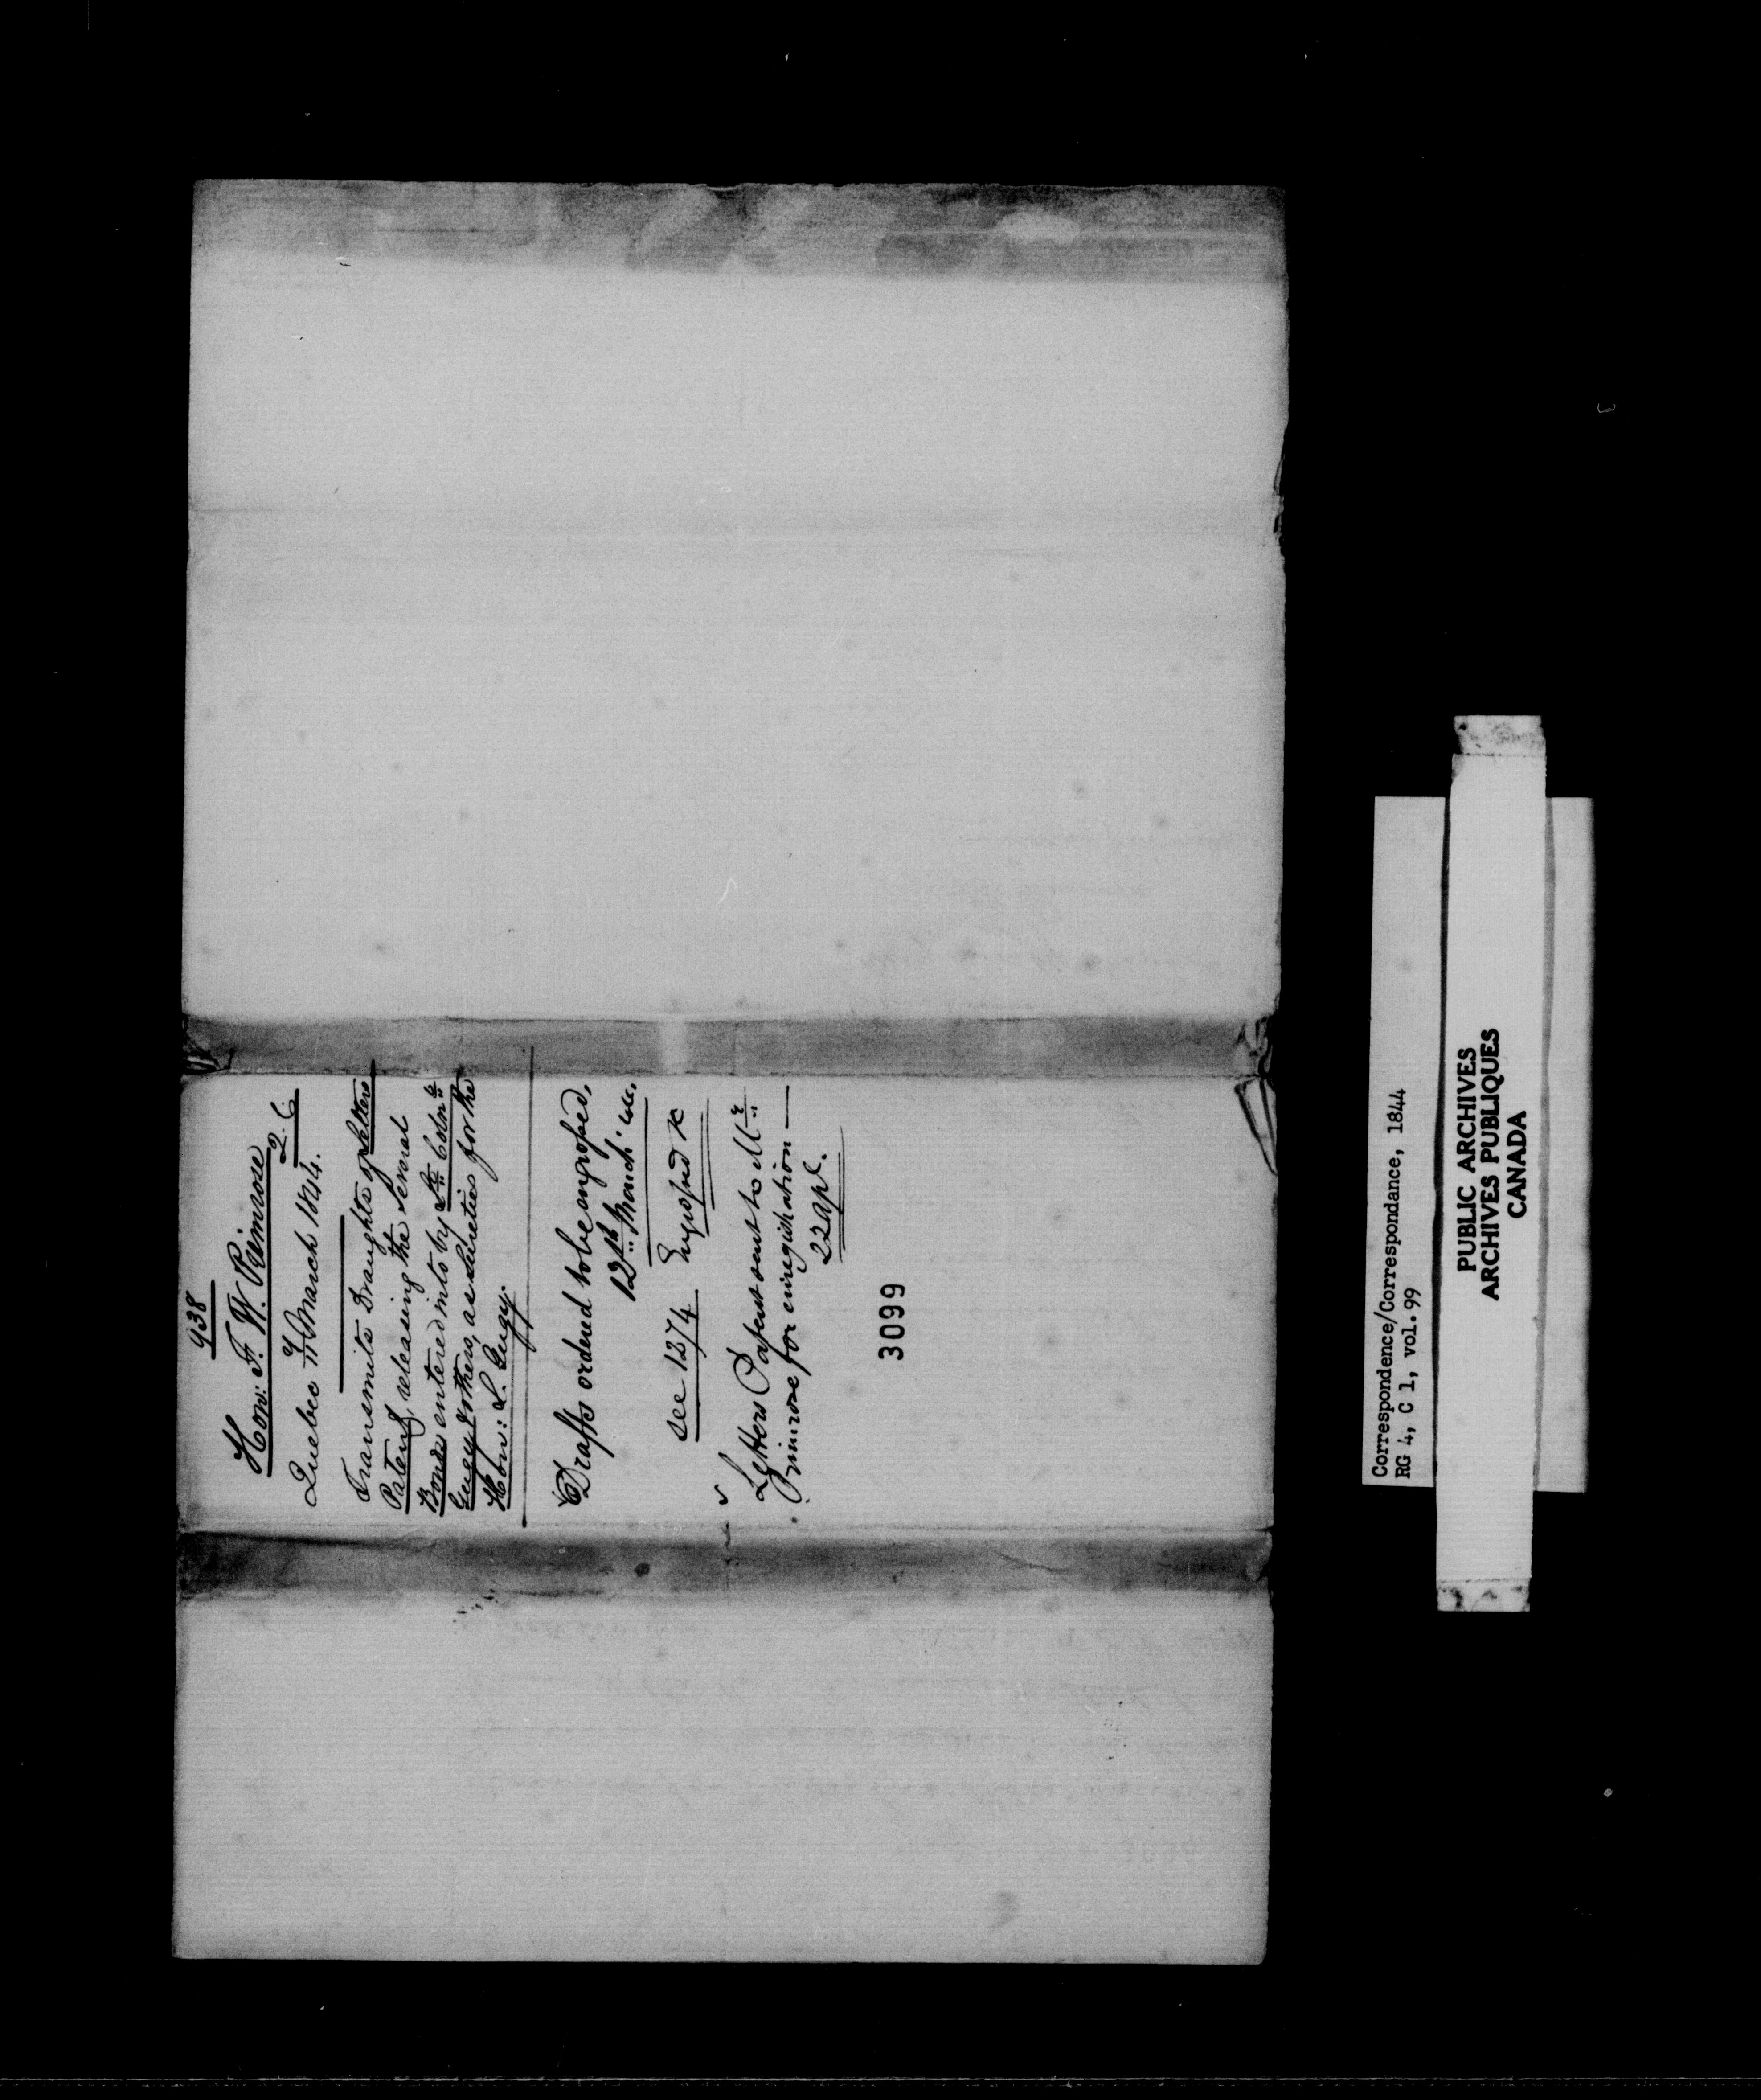 938
Hon: F. W. Primrose
Q. C.
Quebec 7 March 1844.
Transmits Draughts of Letters
Patent, releasing the several
Bonds entered into by Lt. Colon:
Gugy & others, as Sureties for the
Hon: L. Gugy.
Drafts ordered to be engrossed,
12th March
see 1274 Engrossed
Letters Patent sent to Mr
Primrose for enregistration —
22 Apl.
3099
Correspondence/Correspondance, 1844
RG 4, C 1, vol. 99
PUBLIC ARCHIVES
ARCHIVES PUBLIQUES
CANADA